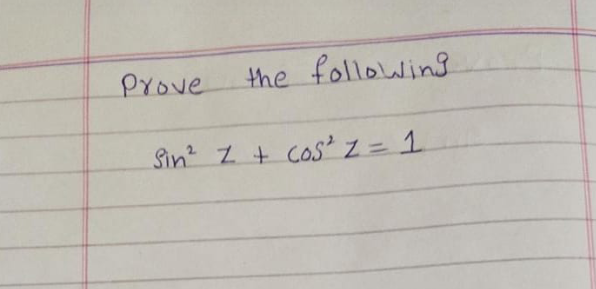 Prove the following
Sin² z + cos² z = 1